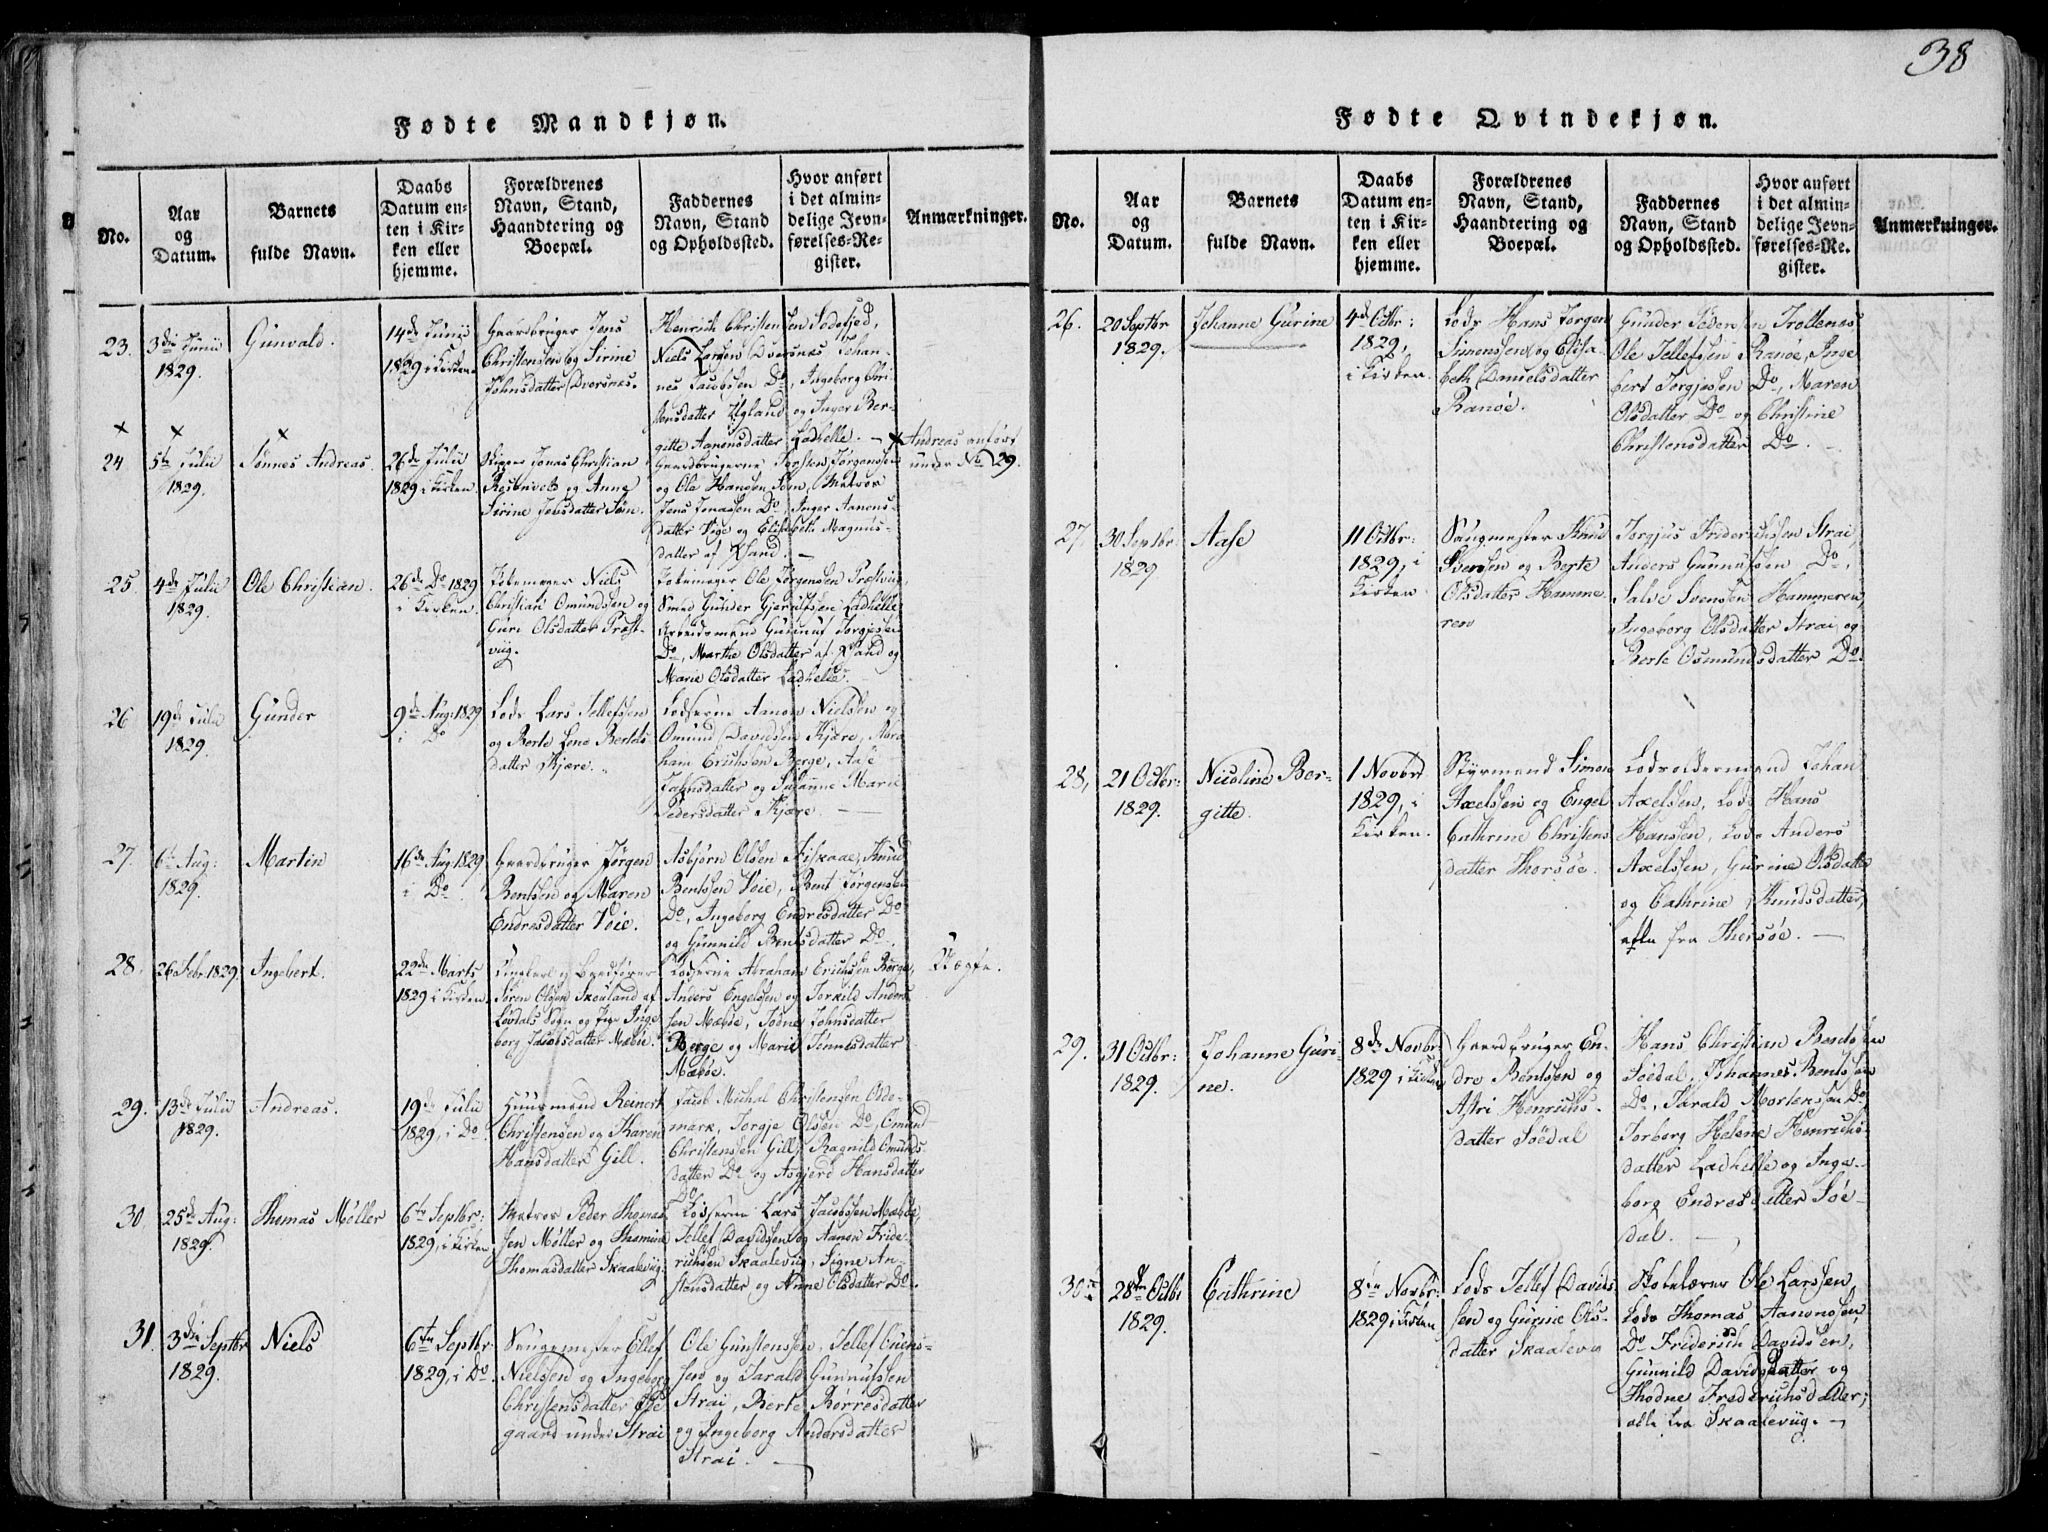 38
Fødte Mandkjøn.
No.
Aar og Datum.
Barnets fulde Navn.
Daabs Datum enten i Kirken eller hjemme.
Forældrenes Navn, Stand, Haandtering og Boepæl.
Faddernes Navn, Stand og Opholdssted.
Hvor anført i det almindelige Jevnførelses-Register.
Anmærkninger.
23. 3die Junii 1829.
Gunvald.
14de Junii 1829 i Kirken
Gaardbruger Jens
Christensen og Sirine
Johnsdatter Dversnes.
Henrich Christensen Sodefjed,
Niels Larsen Dversnes, Johan-
nes Jacobsen Do, Ingeborg Chri-
stensdatter Ugland og Inger Ber-
gitte Aanonsdatter Ladhelle. —
24 5te Julii 1829.
Tønnes Andreas.
26de Julii 1829 i Kirken
Jonas Christian
og Anne
Sirine Jensdatter
Gaardbrugerne Torsten Jørgensen
og Ole Hansen Matros
Jens Jonassen Do, Inger Aanons-
datter Vige og Elisabeth Magnus-
datter af Xsand. —
Andreas anført
under No 29.
25. 4de Julii 1829.
Ole Christian.
26de Do 1829 i Kirken
Niels
Christian Omundsen og
Guri Olsdatter Præst-
viig.
Ole Jørgensen Præstviig,
Smed Gunder Gjerulfsen Ladhelle
Arbeidsmand Gunnuf Torgjesen
Do, Marthe Olsdatter af Xsand og
Marie Olsdatter Ladhelle.
26 19de Julii 1829.
Gunder
9de Aug: 1829 i Do
Lods Lars Tellefsen
og Berte Lene Bertels-
datter Kjære.
Lodserne Aanon Nielsen og
Omund Davidsen Kjære, Abra
ham Erichsen Berge, Aase
datter og Susanne Marie
Pedersdatter Kjære. —
27. 6te Aug: 1829.
Martin
16de Aug: 1829 i Do
Gaardbruger Jørgen
Bentsen og Maren
Endresdatter Voie.
Asbjørn Olsen Fiskaae, Knud
Bentsen Voie, Bent Jørgensen
Do, Ingeborg Endresdatter Do
og Gunnild Bentsdatter Do.
28. 26 Febr 1829
Ingebert.
22de Marts 1829 i Kirken
Ungkarl
Søren Olsen Skouland af
Sogn og Pige Inge
borg Jacobsdatter Mæbøe.
Lodserne Abraham Erichsen Berge,
Anders Engelsen og Torkild Anders
sen Mæbøe, Todne Johnsdatter
Berge og Marie Tønnesdatter
Mæbøe.
Uægte.
29. 13de Julii 1829.
Andreas.
19de Julii 1829, i Do
Huusmand Reinert
Christensen og Karen
Hansdatter Gill.
Jacob Michal Christensen Odde-
mark, Torgje Olsen Do, Omund
Christensen Gill, Ragnild Omunds-
datter Do og Asgjerd Hansdatter
Do
30. 25de Aug: 1829.
Thomas Møller
6te Septbr: 1829, i Kirken
Matros Peder Thomas
sen Møller og Thomine
Thomasdatter Skaalevig.
Lodserne Lars Jacobsen Mæbøe,
Tellef Davidsen og Aanon Fride-
richsen Skaalevig, Signe An-
stensdatter og Anne Olsdatter Do. —
31. 3die Septbr 1829.
Niels
6te Septbr: 1829, i Do
Saugemester Ellef
Nielsen og Ingeborg
Christensdatter
gaard under Strai
Ole Gunstensen, Tellef
sen og Tarald Gunnufsen
Strai, Berte Børresdatter
og Ingeborg Andersdatter
Strai. —
Fødte Qvindekjøn.
No.
Aar og Datum.
Barnets fulde Navn.
Daabs Datum enten i Kirken eller hjemme.
Forældrenes Navn, Stand, Haandtering og Boepæl.
Faddernes Navn, Stand og Opholdssted.
Hvor anført i det almindelige Jevnførelses-Register.
Anmærkninger.
26. 20 Septbr 1829.
Johanne Gurine
4de Octbr: 1829, i Kirken.
Lods Hans Jørgen
Simonsen og Elisa-
beth Danielsdatter
Randøe.
Gunder Pedersen Trollenæs
Ole Tellefsen Randøe, Inge
bert Torgjesen Do, Maren
Olsdatter Do og Christine
Christensdatter Do. —
27. 30 Septbr: 1829
Aase
11 Octbr: 1829, i Kirken
Saugmester Knud
Svensen og Berte
Olsdatter Hamme
ren
Torgjus Friderichsen Strai,
Anders Gunnufsen Do,
Salve Svensen Hammeren,
Ingeborg Olsdatter Strai og
Berte Osmundsdatter Do.
28. 21 Octbr: 1829.
Nicoline Ber-
gitte.
1 Novbr 1829, i Kirken.
Styrmand Simon
Axelsen og Engel
Cathrine Christens
datter Thorsøe.
Lodsoldermand Johan
Axelsen, Lods Hans
Hansen, Lods Anders
Axelsen, Gurine Olsdatter
og Cathrine Knudsdatter,
alle fra Thorsøe. —
29. 31 Octbr: 1829.
Johanne Guri-
ne.
8de Novbr: 1829 i Kirken
Gaardbruger En-
dre Bentsen og
Astri Henrichs-
datter Søedal
Hans Christian Bentsen
Søedal, Johannes Bentsen
Do, Tarald Mortensen Do,
Torborg Helene Henrichs-
datter Ladhelle og Inge-
borg Endresdatter Søe-
dal. —
30. 28de Octbr 1829.
Cathrine
8de Novbr: 1829 i Kirken
Lods Tellef Davids
sen og Gurine Ols-
datter Skaalevig
Skolelærer Ole Larsen,
Lods Thomas Aanonsen,
Do Friderich Davidsen,
Gunnild Davidsdatter og
Thodne Frederichsdatter,
alle fra Skaaleviig. —